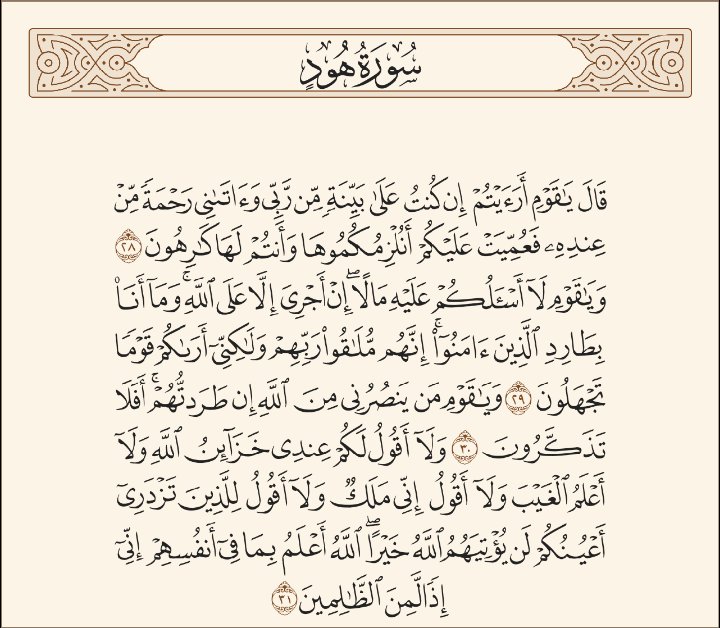 سُورَةُ هُودٍ
قَالَ يَـٰقَوْمِ أَرَءَيْتُمْ إِن كُنتُ عَلَىٰ بَيِّنَةٍ مِّن رَّبِّى وَءَاتَىٰنِى رَحْمَةً مِّنْ
عِندِهِۦ فَعُمِّيَتْ عَلَيْكُمْ أَنُلْزِمُكُمُوهَا وَأَنتُمْ لَهَا كَـٰرِهُونَ ٢٨
وَيَـٰقَوْمِ لَآ أَسْـَٔلُكُمْ عَلَيْهِ مَالًا ۖ إِنْ أَجْرِىَ إِلَّا عَلَى ٱللَّهِ ۚ وَمَآ أَنَا۠
بِطَارِدِ ٱلَّذِينَ ءَامَنُوٓا۟ ۚ إِنَّهُم مُّلَـٰقُوا۟ رَبِّهِمْ وَلَـٰكِنِّىٓ أَرَىٰكُمْ قَوْمًا
تَجْهَلُونَ ٢٩ وَيَـٰقَوْمِ مَن يَنصُرُنِى مِنَ ٱللَّهِ إِن طَرَدتُّهُمْ ۚ أَفَلَا
تَذَكَّرُونَ ٣٠ وَلَآ أَقُولُ لَكُمْ عِندِى خَزَآئِنُ ٱللَّهِ وَلَآ
أَعْلَمُ ٱلْغَيْبَ وَلَآ أَقُولُ إِنِّى مَلَكٌ وَلَآ أَقُولُ لِلَّذِينَ تَزْدَرِىٓ
أَعْيُنُكُمْ لَن يُؤْتِيَهُمُ ٱللَّهُ خَيْرًا ۖ ٱللَّهُ أَعْلَمُ بِمَا فِىٓ أَنفُسِهِمْ ۖ إِنِّىٓ
إِذًا لَّمِنَ ٱلظَّـٰلِمِينَ ٣١